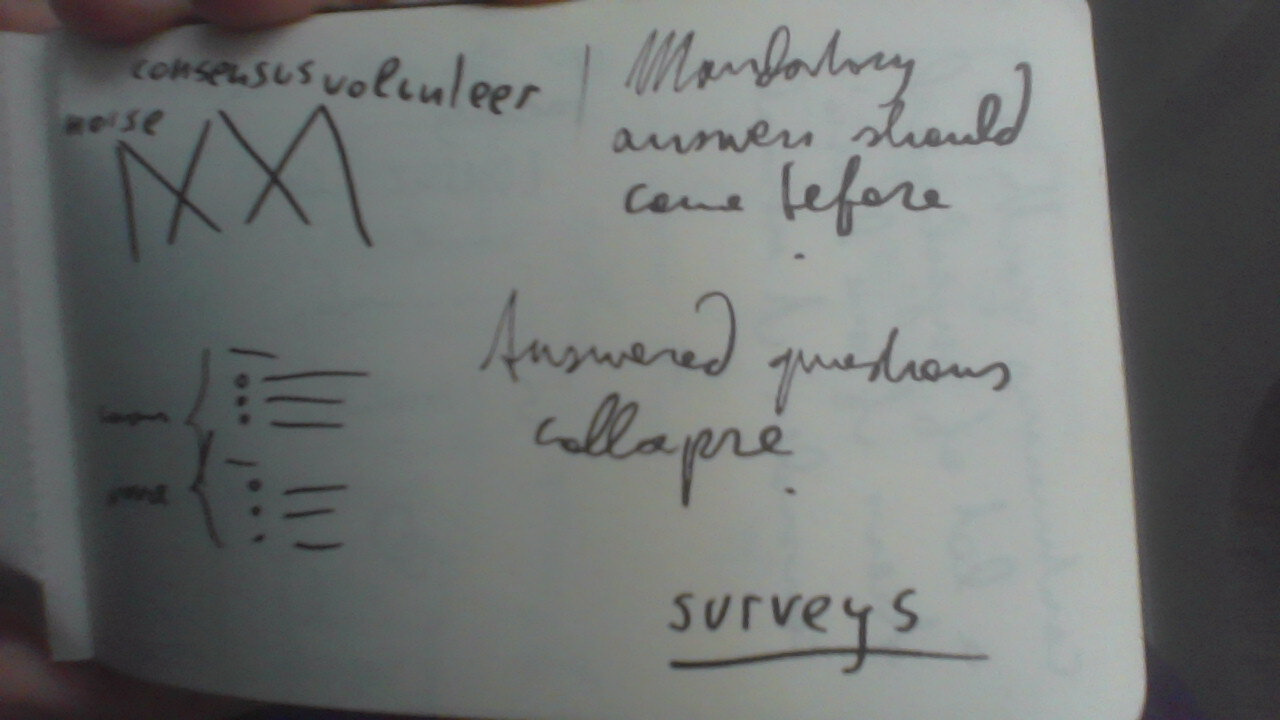 consensus volunteer
noise
Mandatory
answers should
come before
Answered questions
collapse
surveys